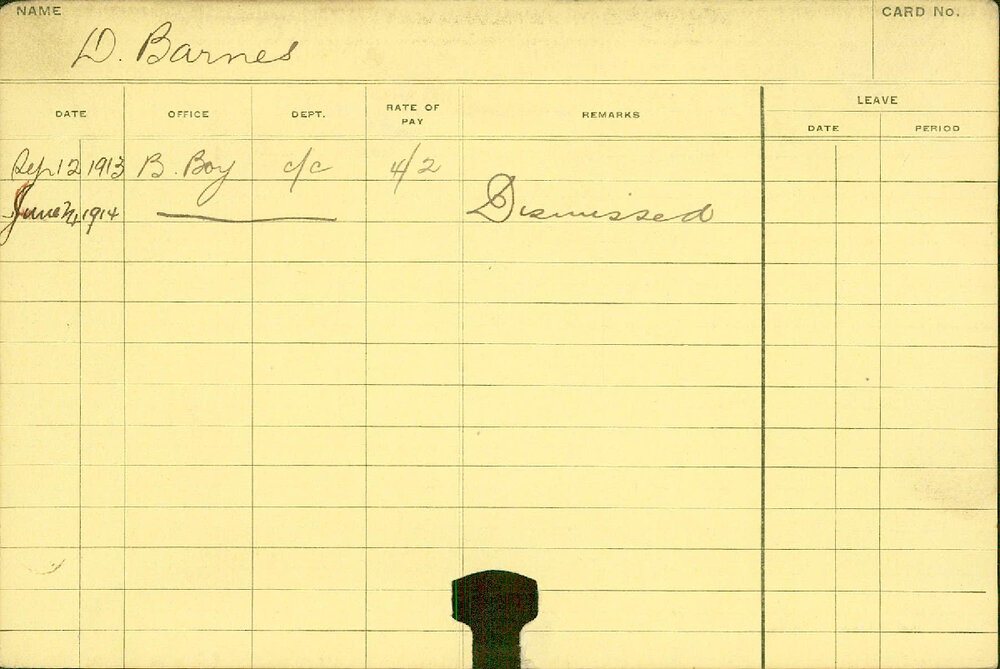 NAME
CARD No.
D. Barnes
DATE OFFICE DEPT. RATE OF PAY REMARKS LEAVE
DATE PERIOD
Sep. 12 1913 B. Boy c/c 4/2
June 1914 Dismissed